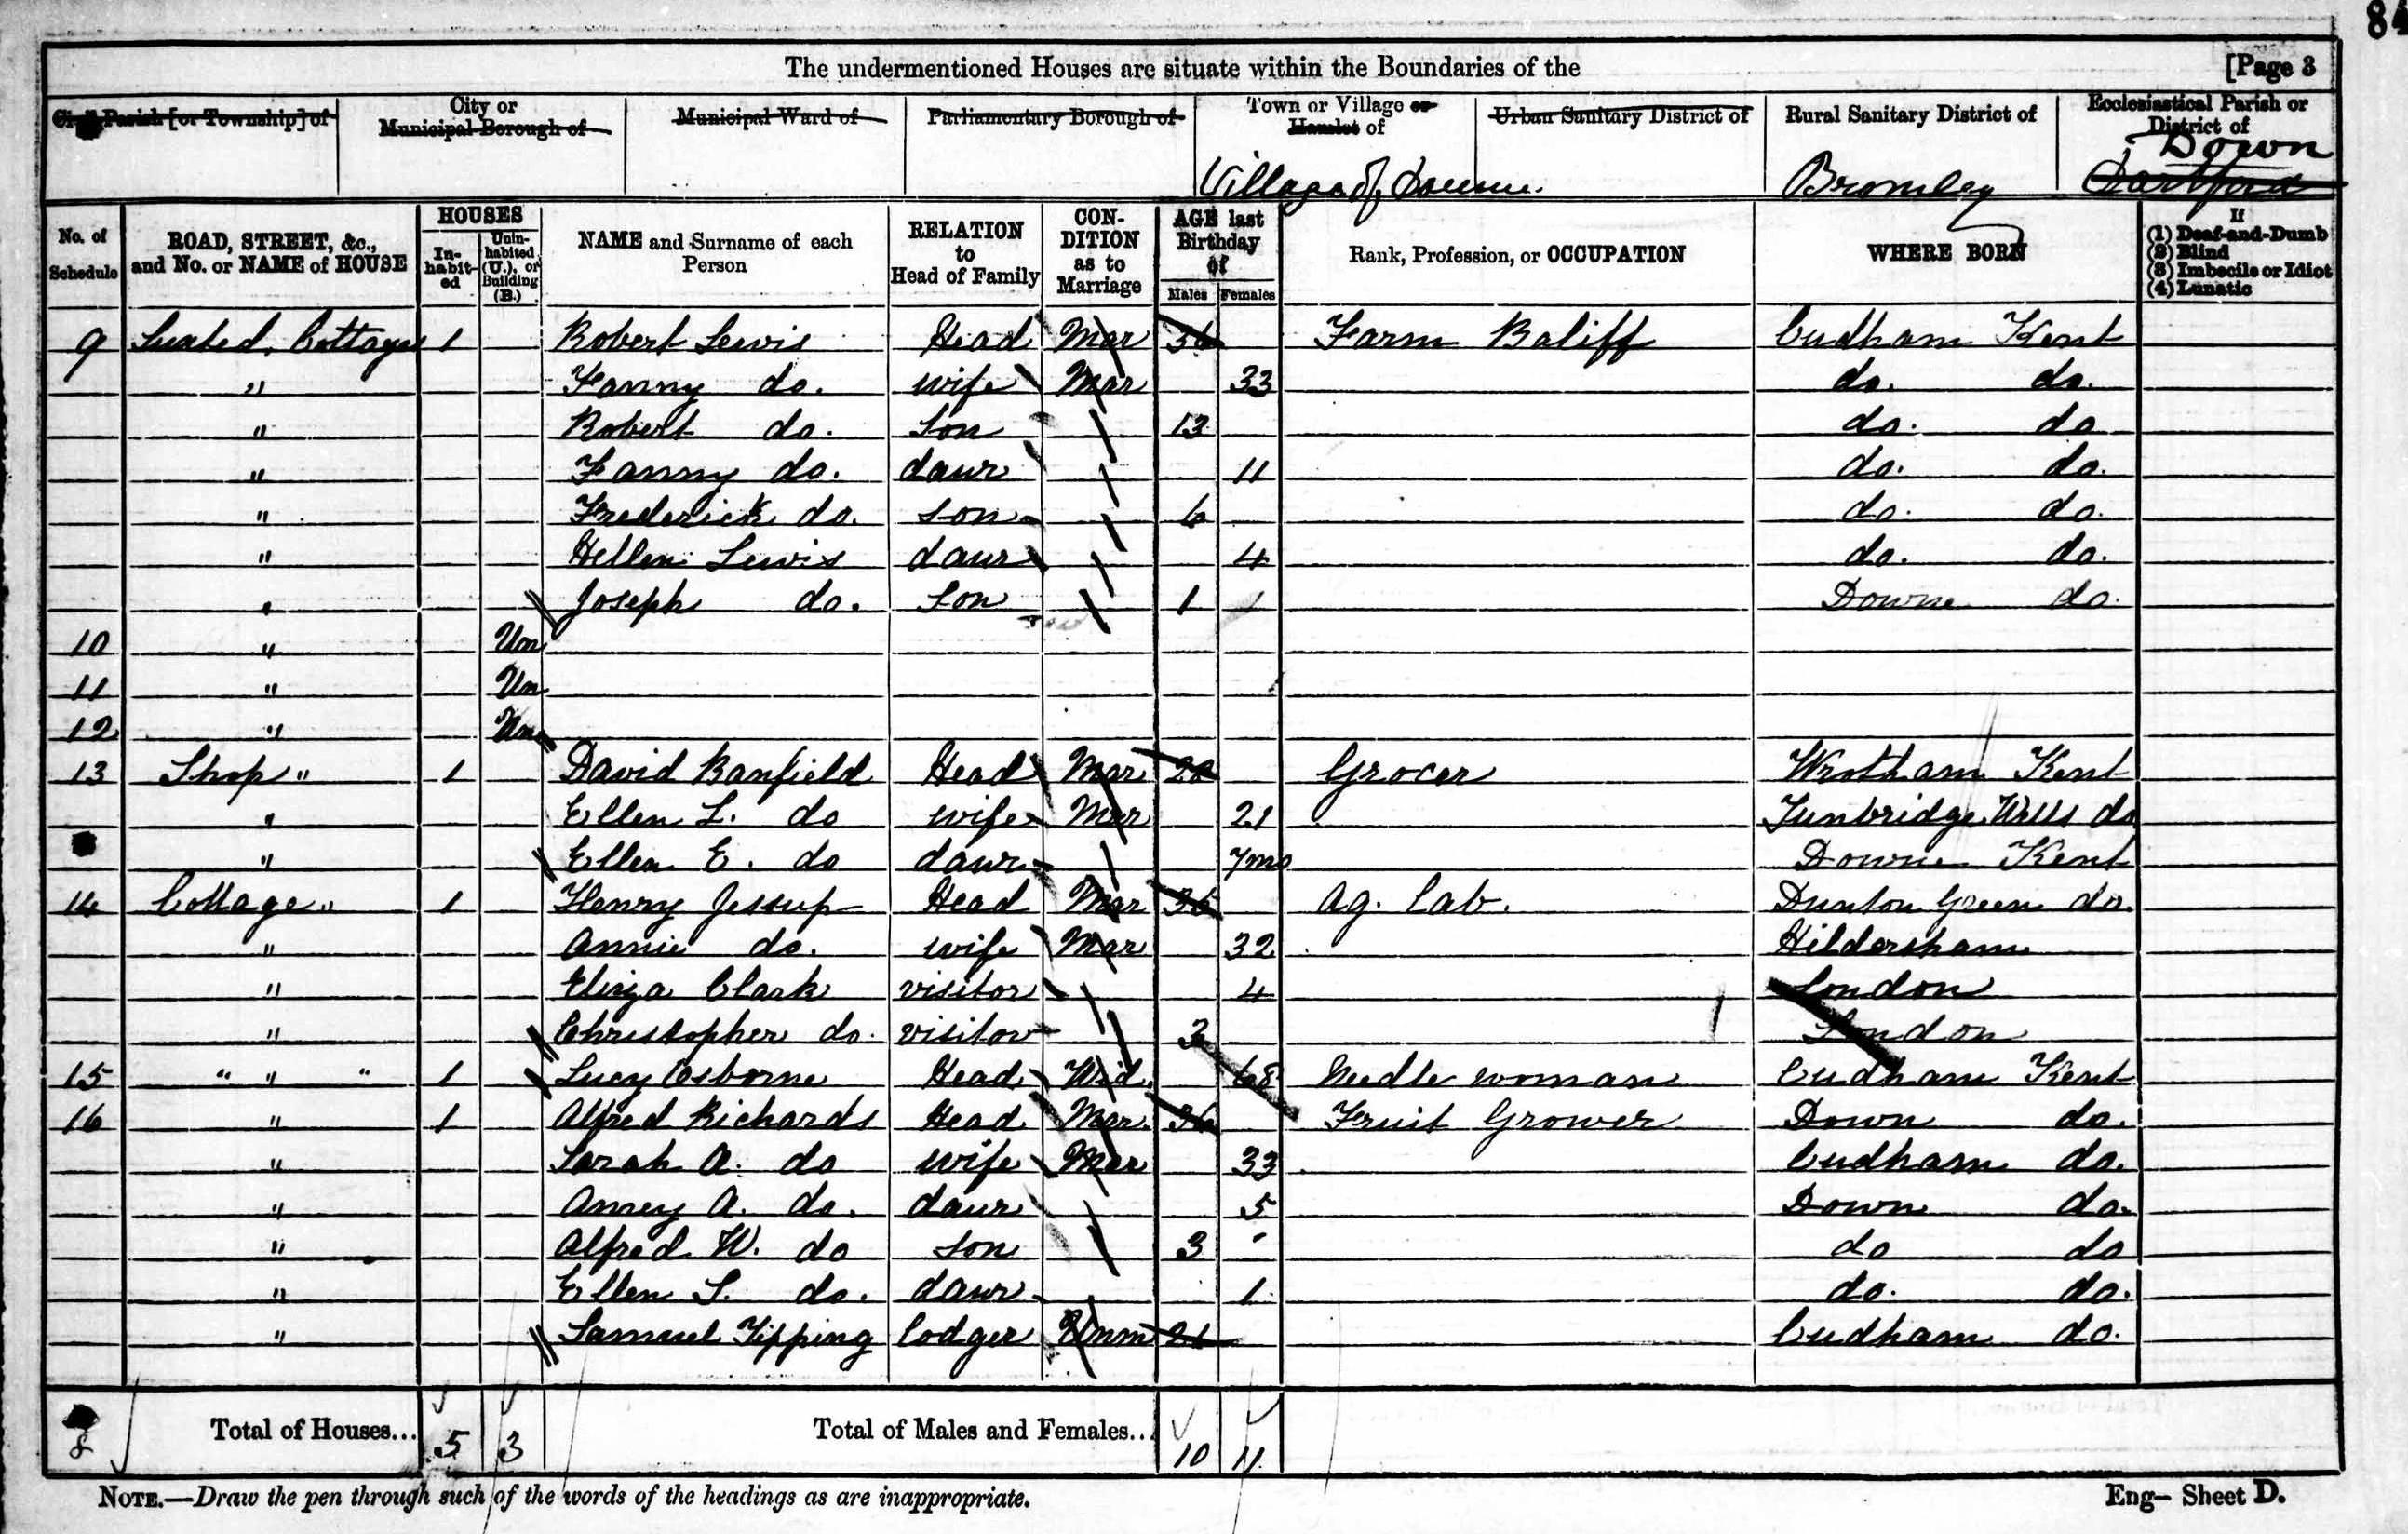 84
The undermentioned Houses are situate within the Boundaries of the [Page 3
Civil Parish [or Township] of City or Municipal Borough of Municipal Ward of Parliamentary Borough of Town or Village or Hamlet of Urban Sanitary District of Rural Sanitary District of Ecclesiastical Parish or District of
Village of Downe Bromley Down Dartford
No. of Schedule ROAD, STREET, &c., and No. or NAME of HOUSE HOUSES In-habit-ed Unin-habited (U.), or Building (B.) NAME and Surname of each Person RELATION to Head of Family CON-DITION as to Marriage AGE last Birthday of Males Females Rank, Profession, or OCCUPATION WHERE BORN If (1) Deaf-and-Dumb (2) Blind (3) Imbecile or Idiot (4) Lunatic
9 Cottages 1 Robert Lewis Head Mar 36 Farm Baliff Cudham Kent
" Fanny do. wife Mar 33 do. do.
" Robert do. Son 13 do. do
" Fanny do. daur 11 do. do.
" Frederick do. son 6 do. do.
" Hellen Lewis daur 4 do. do.
" Joseph do. Son 1 Downe do.
10 " Un
11 " Un
12 " Un
13 Shop " 1 David Banfield Head Mar 28 Grocer Wrotham Kent
" Ellen L. do wife Mar 21 Tunbridge Wells do
" Ellen E. do daur 7mo Downe Kent
14 Cottage " 1 Henry Jessup Head Mar 36 Ag. Lab. Dunton Green do.
" Annie do. wife Mar 32 Hildersham
" Eliza Clark visitor 4 London
" Christopher do. visitor 3 London
15 " " " 1 Lucy Osborne Head Wid. 68 Needle woman Cudham Kent
16 " 1 Alfred Richards Head Mar. 36 Fruit Grower Down do.
" Sarah A. do wife Mar 33 Cudham do.
" Amey A. do. daur 5 Down do.
" Alfred W. do son 3 do do
" Ellen S. do. daur 1 do. do.
" Samuel Tipping lodger Unm 21 Cudham do.
8 Total of Houses... 5 3 Total of Males and Females... 10 11
NOTE.—Draw the pen through such of the words of the headings as are inappropriate. Eng— Sheet D.